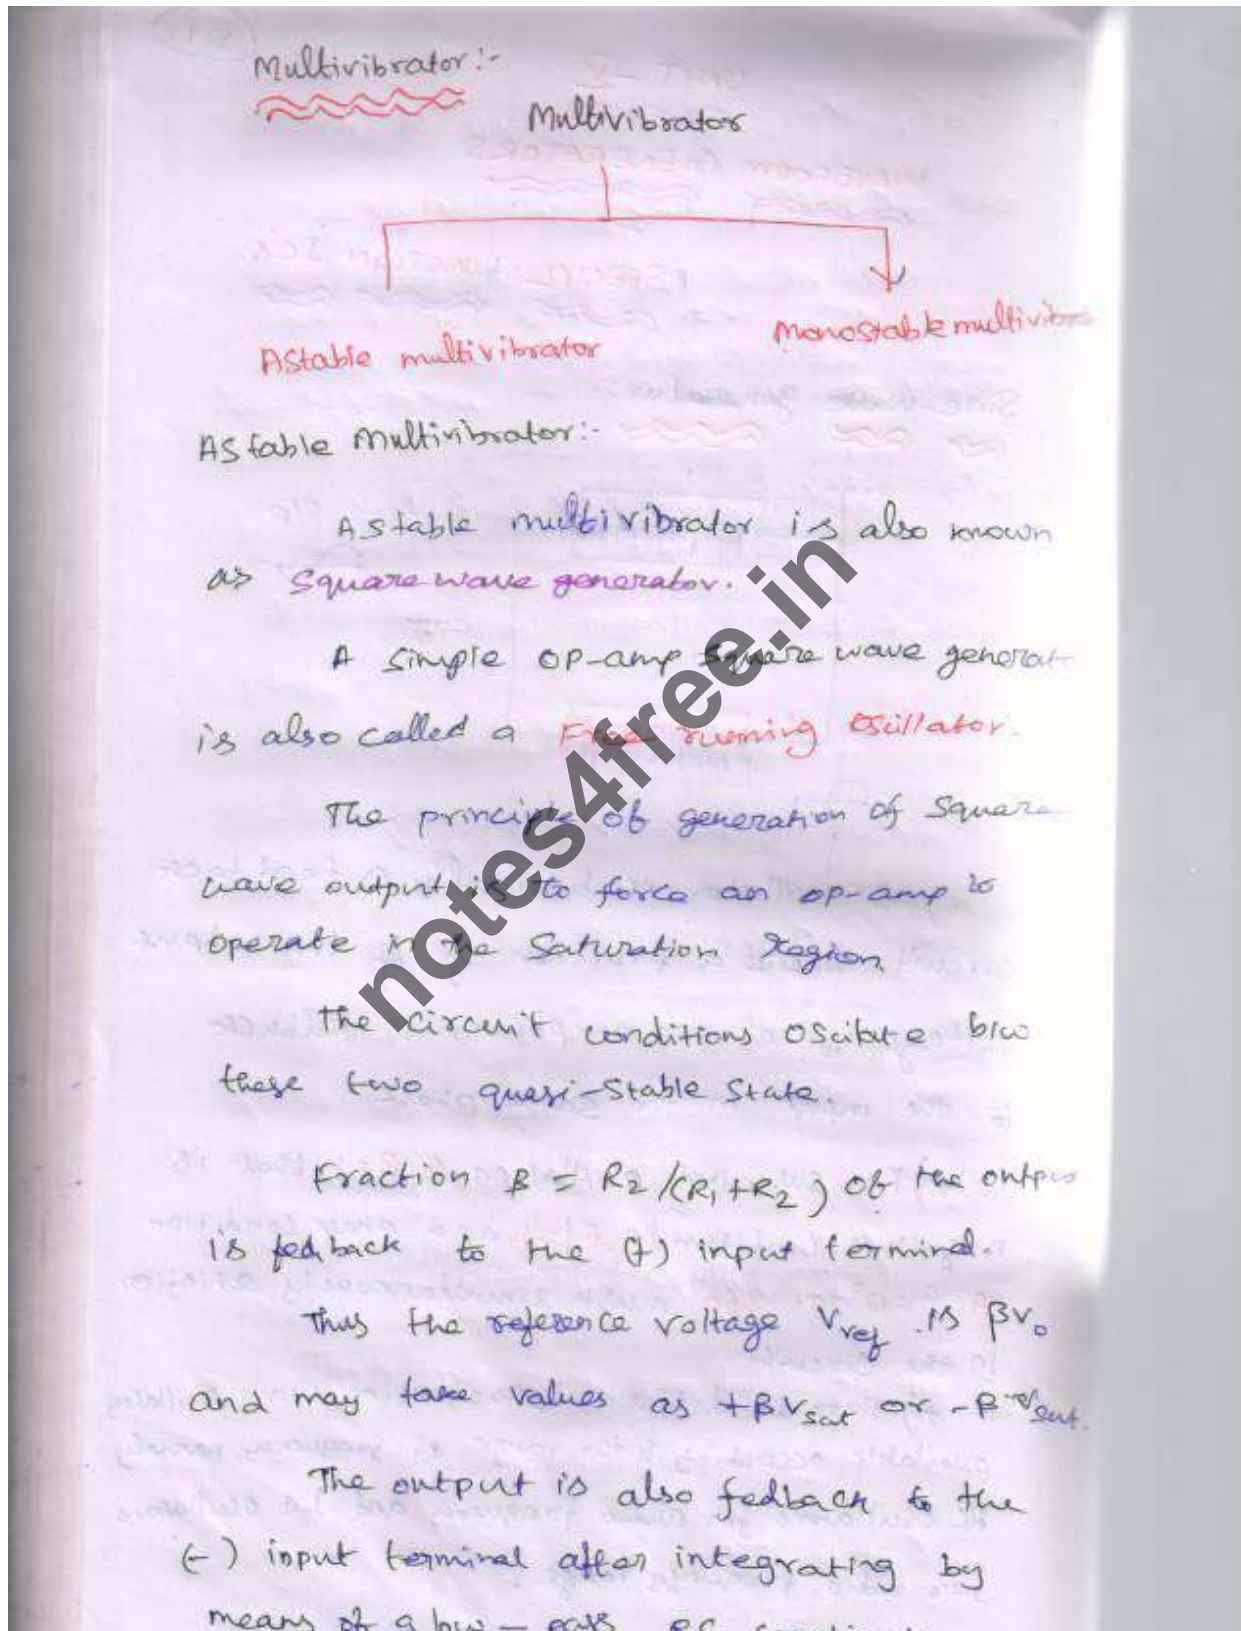 Multivibrator:-
Multivibrator
Astable multivibrator
Monostable multivibr
AStable Multivibrator:-
Astable multivibrator is also known
as Square wave generator.
A simple op-amp square wave generat
is also called a Free running Oscillator.
The principle of generation of Square
wave output is to force an op-amp to
operate in the Saturation region
The circuit conditions oscillate b/w
these two quasi-Stable State.
Fraction β = R2/(R1+R2) of the outpu
is fedback to the (+) input terminal.
Thus the reference voltage Vref is βVo
and may take values as +βVsat or -βVsat.
The output is also fedback to the
(-) input terminal after integrating by
means of a low-pass RC
notes4free.in